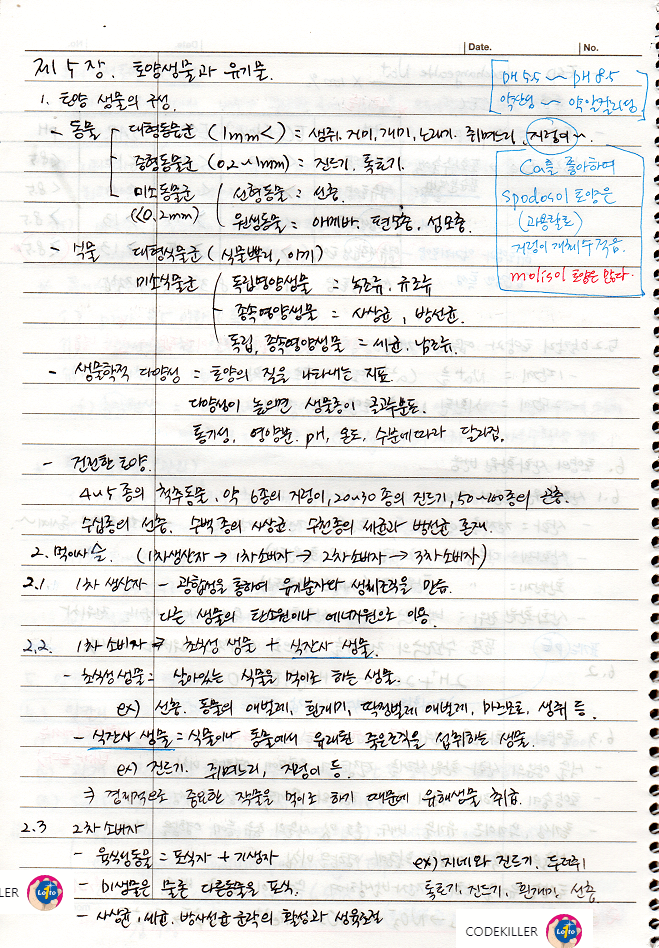 Date. No.
제 5 장. 토양생물과 유기물.
pH 5.5 ~ pH 8.5
약산성 ~ 약알칼리성
1. 토양 생물의 구성.
- 동물 대형동물군 (1mm<) = 생쥐, 거미, 개미, 노래기, 쥐며느리, 지렁이~
중형동물군 (0.2~1mm) = 진드기, 톡토기.
미소동물군 선형동물 = 선충.
(<0.2mm) 원생동물 = 아메바, 편모충, 섬모충.
Ca를 좋아하여
spodosol 토양은
(과용탈로)
지렁이 개체수 적음.
molisol 토양은 많다.
- 식물 대형식물군 (식물뿌리, 이끼)
미소식물군 독립영양생물 = 녹조류, 규조류
종속영양생물 = 사상균, 방선균.
독립, 종속영양생물 = 세균, 남조류.
- 생물학적 다양성 = 토양의 질을 나타내는 지표.
다양성이 높으면 생물종이 골고루분포.
통기성, 영양분, pH, 온도, 수분에따라 달라짐.
- 건전한 토양.
4~5 종의 척추동물, 약 6종의 지렁이, 20~30 종의 진드기, 50~100종의 곤충.
수십종의 선충, 수백 종의 사상균, 수천종의 세균과 방선균 존재.
2. 먹이사슬. (1차생산자 → 1차소비자 → 2차소비자 → 3차소비자)
2.1 1차 생산자 - 광합성을 통하여 유기분자와 생체조직을 만듬.
다른 생물의 탄소원이나 에너지원으로 이용.
2.2. 1차 소비자 ⇒ 초식성 생물 + 식잔사 생물.
- 초식성생물 = 살아있는 식물을 먹이로 하는 생물.
ex) 선충, 동물의 애벌레, 흰개미, 딱정벌레 애벌레, 마르모트, 생쥐 등.
- 식잔사 생물 = 식물이나 동물에서 유래된 죽은조직을 섭취하는 생물.
ex) 진드기, 쥐며느리, 지렁이 등.
⇒ 경제적으로 중요한 작물을 먹이로 하기 때문에 유해생물 취급.
2.3 2차 소비자
- 육식동물 = 포식자 + 기생자 ex) 지네와 진드기, 두더쥐
- 미생물은 물론 다른동물을 포식. 톡토기, 진드기, 흰개미, 선충.
- 사상균, 세균, 방사선균 군락의 활성과 생육조절
LLER Lotto
CODEKILLER Lotto